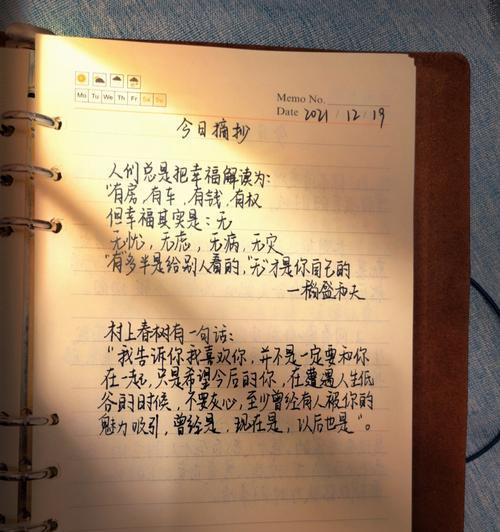 Mo Tu We Th Fr Sa Su
Memo No.
Date 2021 / 12 / 19
今日摘抄
人们总是把幸福解读为:
"有房,有车,有钱,有权
但幸福其实是:无
无忧,无虑,无病,无灾
"有"多半是给别人看的,"无"才是你自己的
—稻盛和夫
村上春树有一句话:
"我告诉你我喜欢你,并不是一定要和你
在一起,只是希望今后的你,在遭遇人生低
谷的时候,不要灰心,至少曾经有人被你的
魅力吸引,曾经是,现在是,以后也是"。